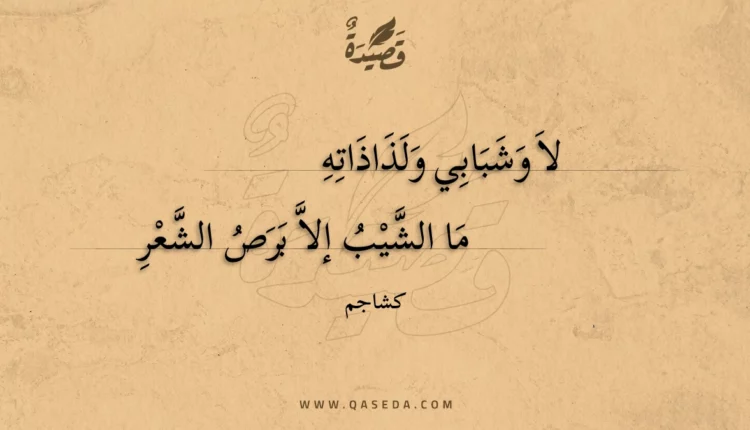 قَصِيدَةٌ
لاَ وَشَبَابِي وَلَذَاذَاتِهِ
مَا الشَّيْبُ إلاَّ بَرَصُ الشَّعْرِ
كشاجم
WWW.QASEDA.COM